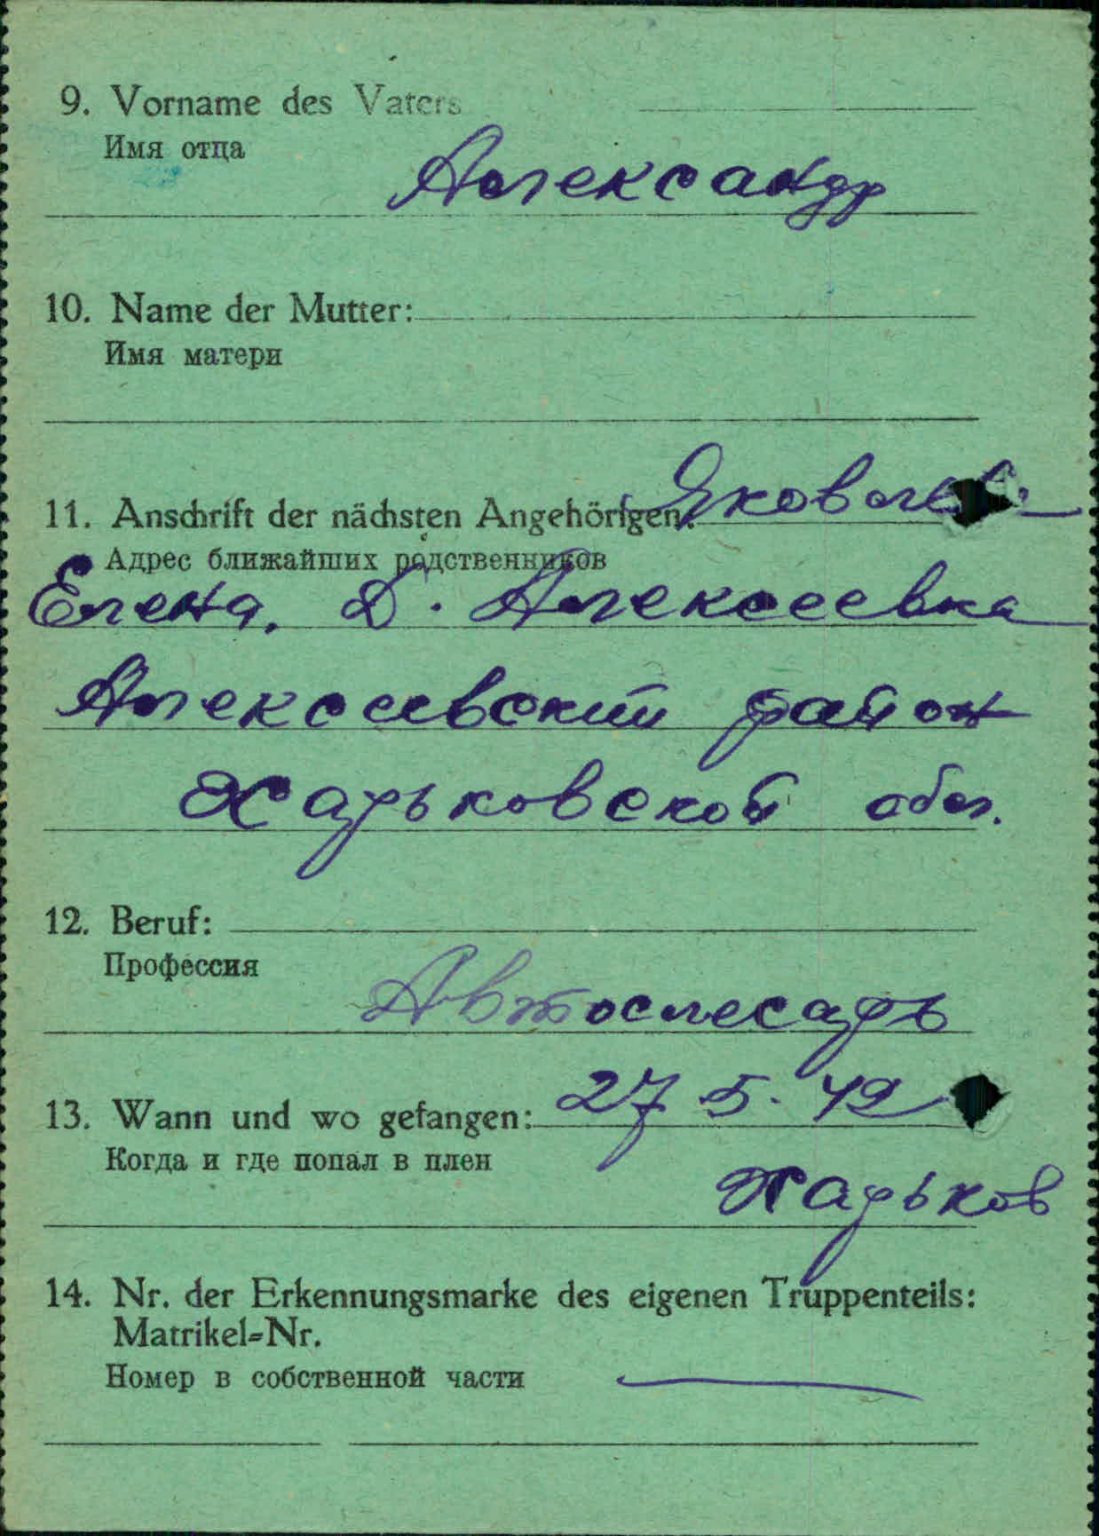 9. Vorname des Vaters
Имя отца
Александр
10. Name der Mutter:
Имя матери
11. Anschrift der nächsten Angehörigen:
Адрес ближайших родственников
Елена, Д. Алексеевка
Алексеевский район
Харьковской обл.
12. Beruf:
Профессия
Автослесарь
13. Wann und wo gefangen: 27.5.42
Когда и где попал в плен
Харьков
14. Nr. der Erkennungsmarke des eigenen Truppenteils:
Matrikel-Nr.
Номер в собственной части